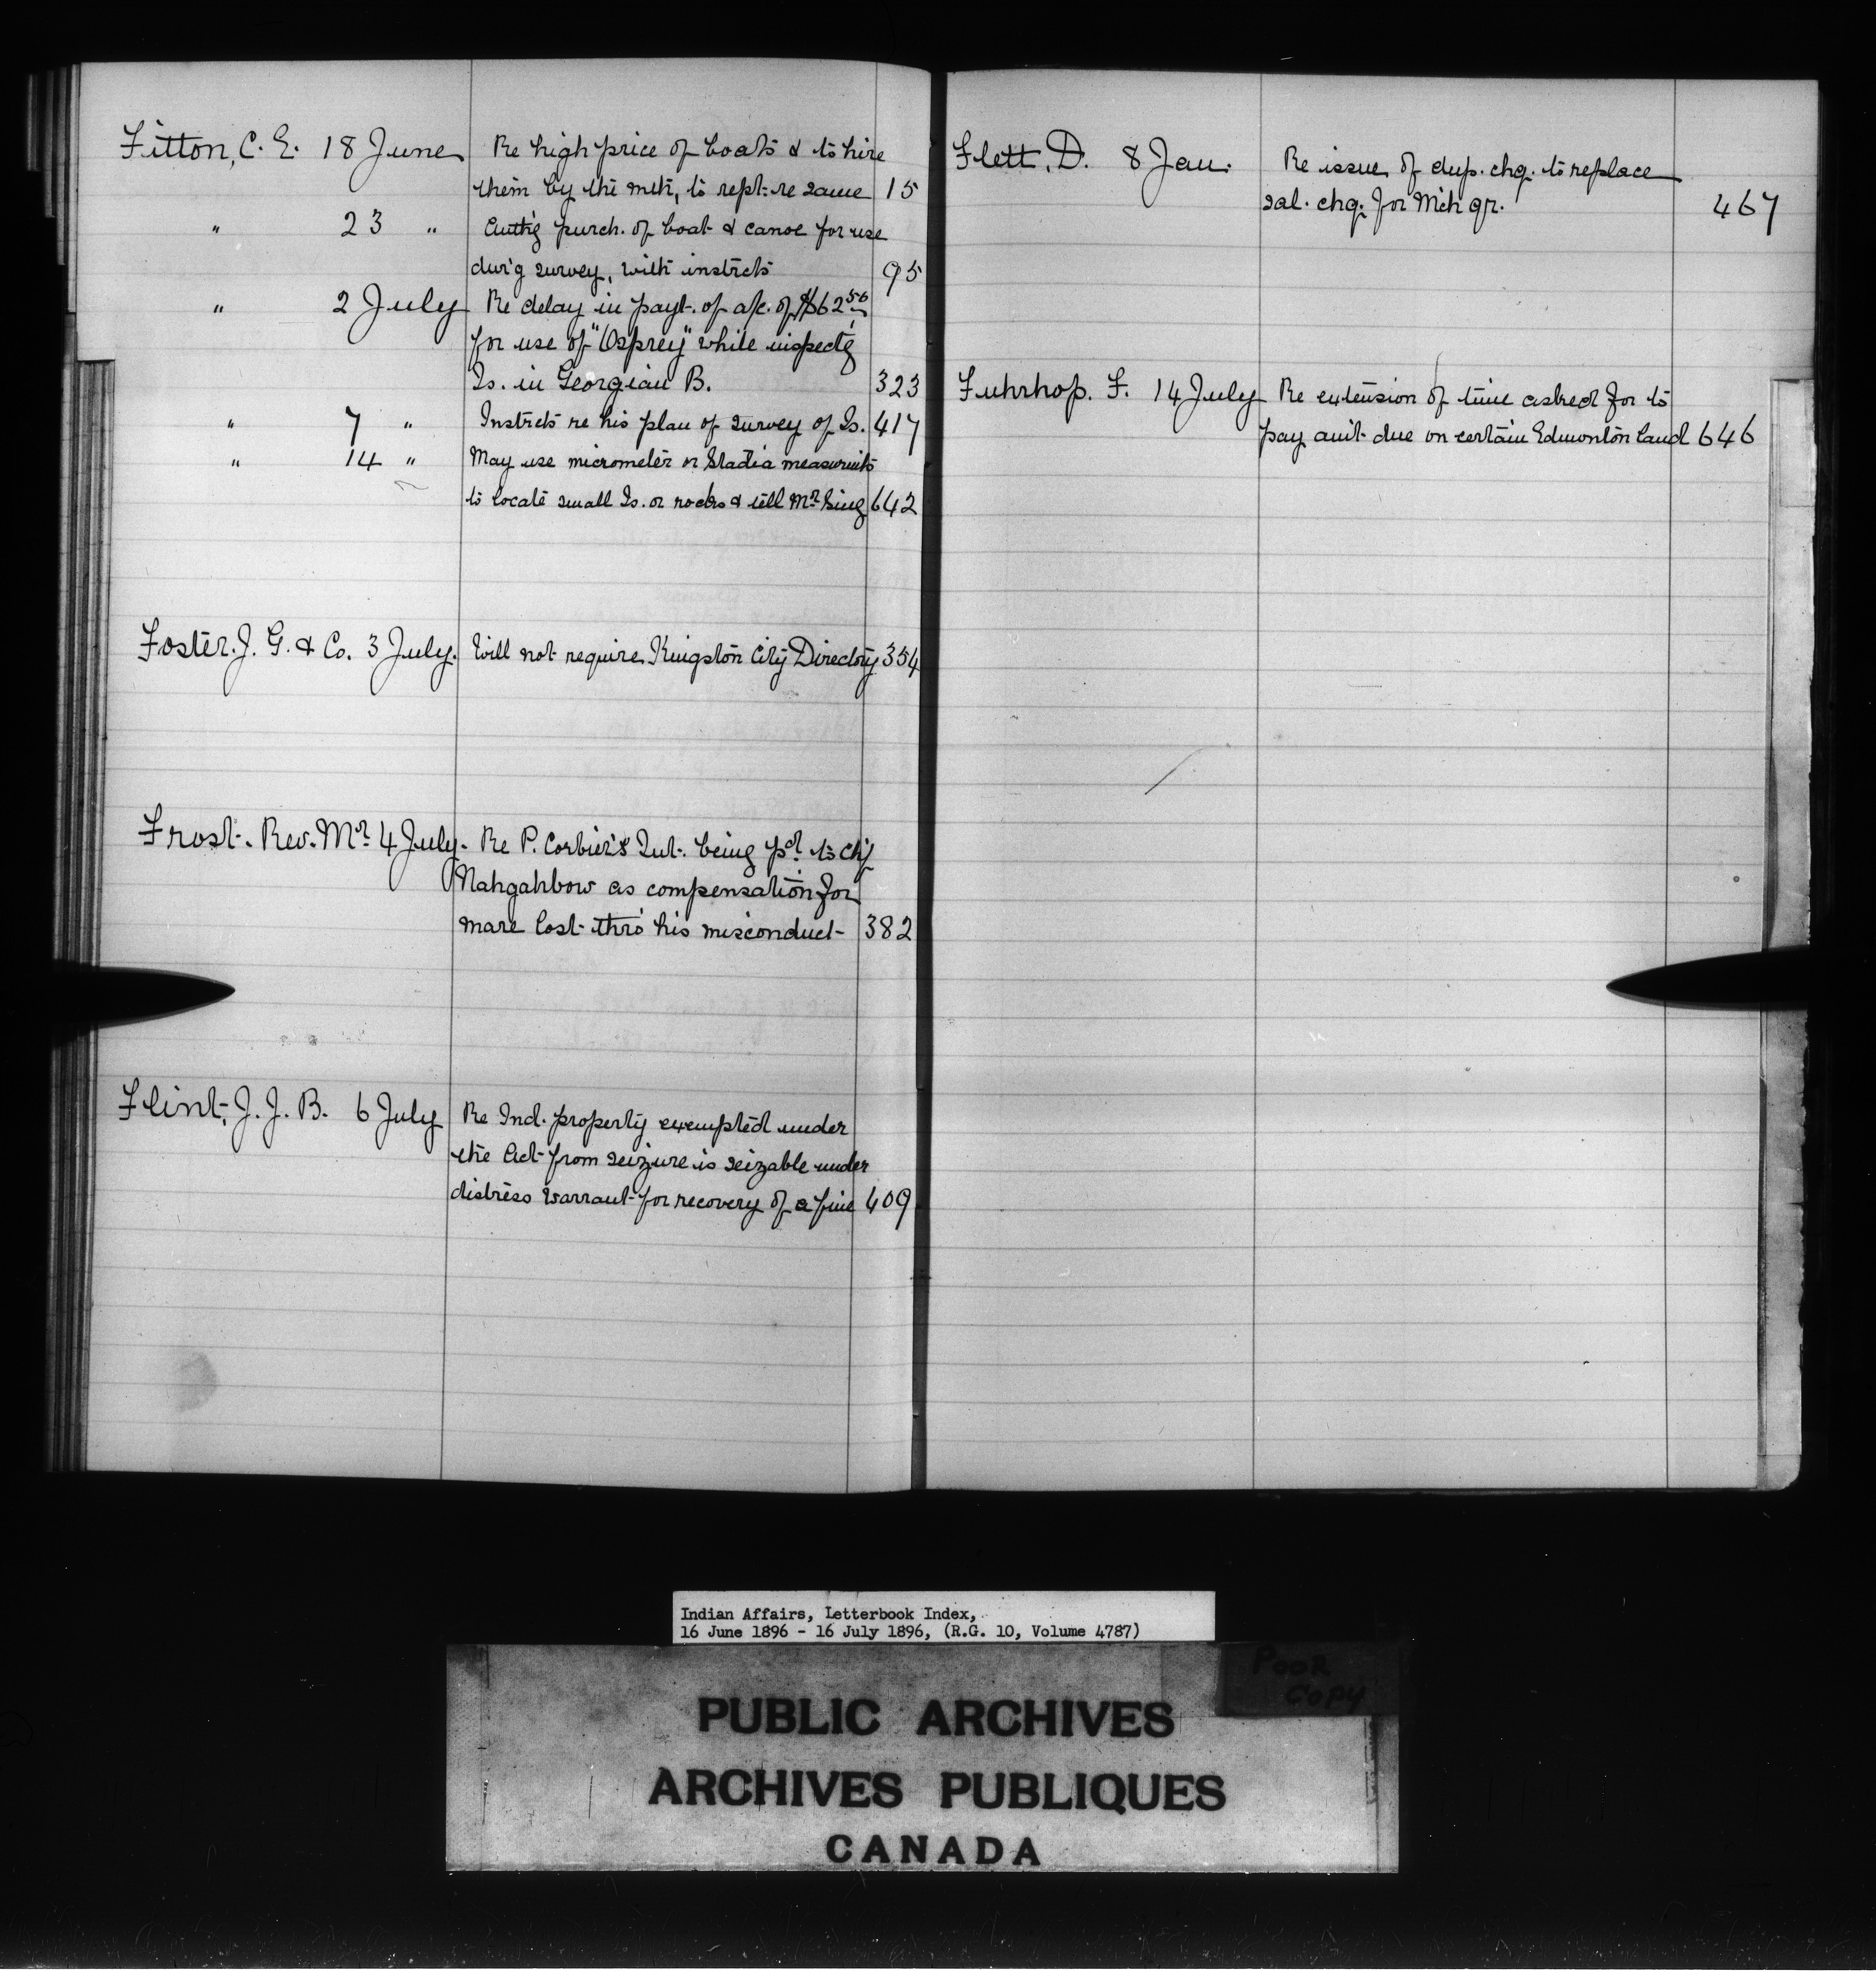 Fitton, C. E. 18 June Re high price of boats & to hire
them by the mth, to rept. re same 15
" 23 " Auth'g purch. of boat & canoe for use
dur'g survey, with instrcts 95
" 2 July Re delay in payt. of a/c. of $62.50
for use of "Osprey" while inspect'g
Is. in Georgian B. 323
" 7 " Instrcts re his plan of survey of Is. 417
" 14 " May use micrometer or Stadia measurm'ts
to locate small Is. or rocks & tell Mr. King 642
Foster. J. G. & Co. 3 July. Will not require Kingston City Directory 354
Frost. Rev. Mr. 4 July. Re P. Corbier's Int. being pd. to Chf
Nahgahbow as compensation for
mare lost thro' his misconduct 382
Flint, J. J. B. 6 July Re Ind. property exempted under
the Act from seizure is seizable under
distress warrant for recovery of a fine 409
Flett, D. 8 Jan. Re issue of dup. chq. to replace
sal. chq. for Mch qr. 467
Fuhrhop. F. 14 July Re extension of time asked for to
pay amt due on certain Edmonton land 646
Indian Affairs, Letterbook Index,
16 June 1896 - 16 July 1896, (R.G. 10, Volume 4787)
POOR
COPY
PUBLIC ARCHIVES
ARCHIVES PUBLIQUES
CANADA